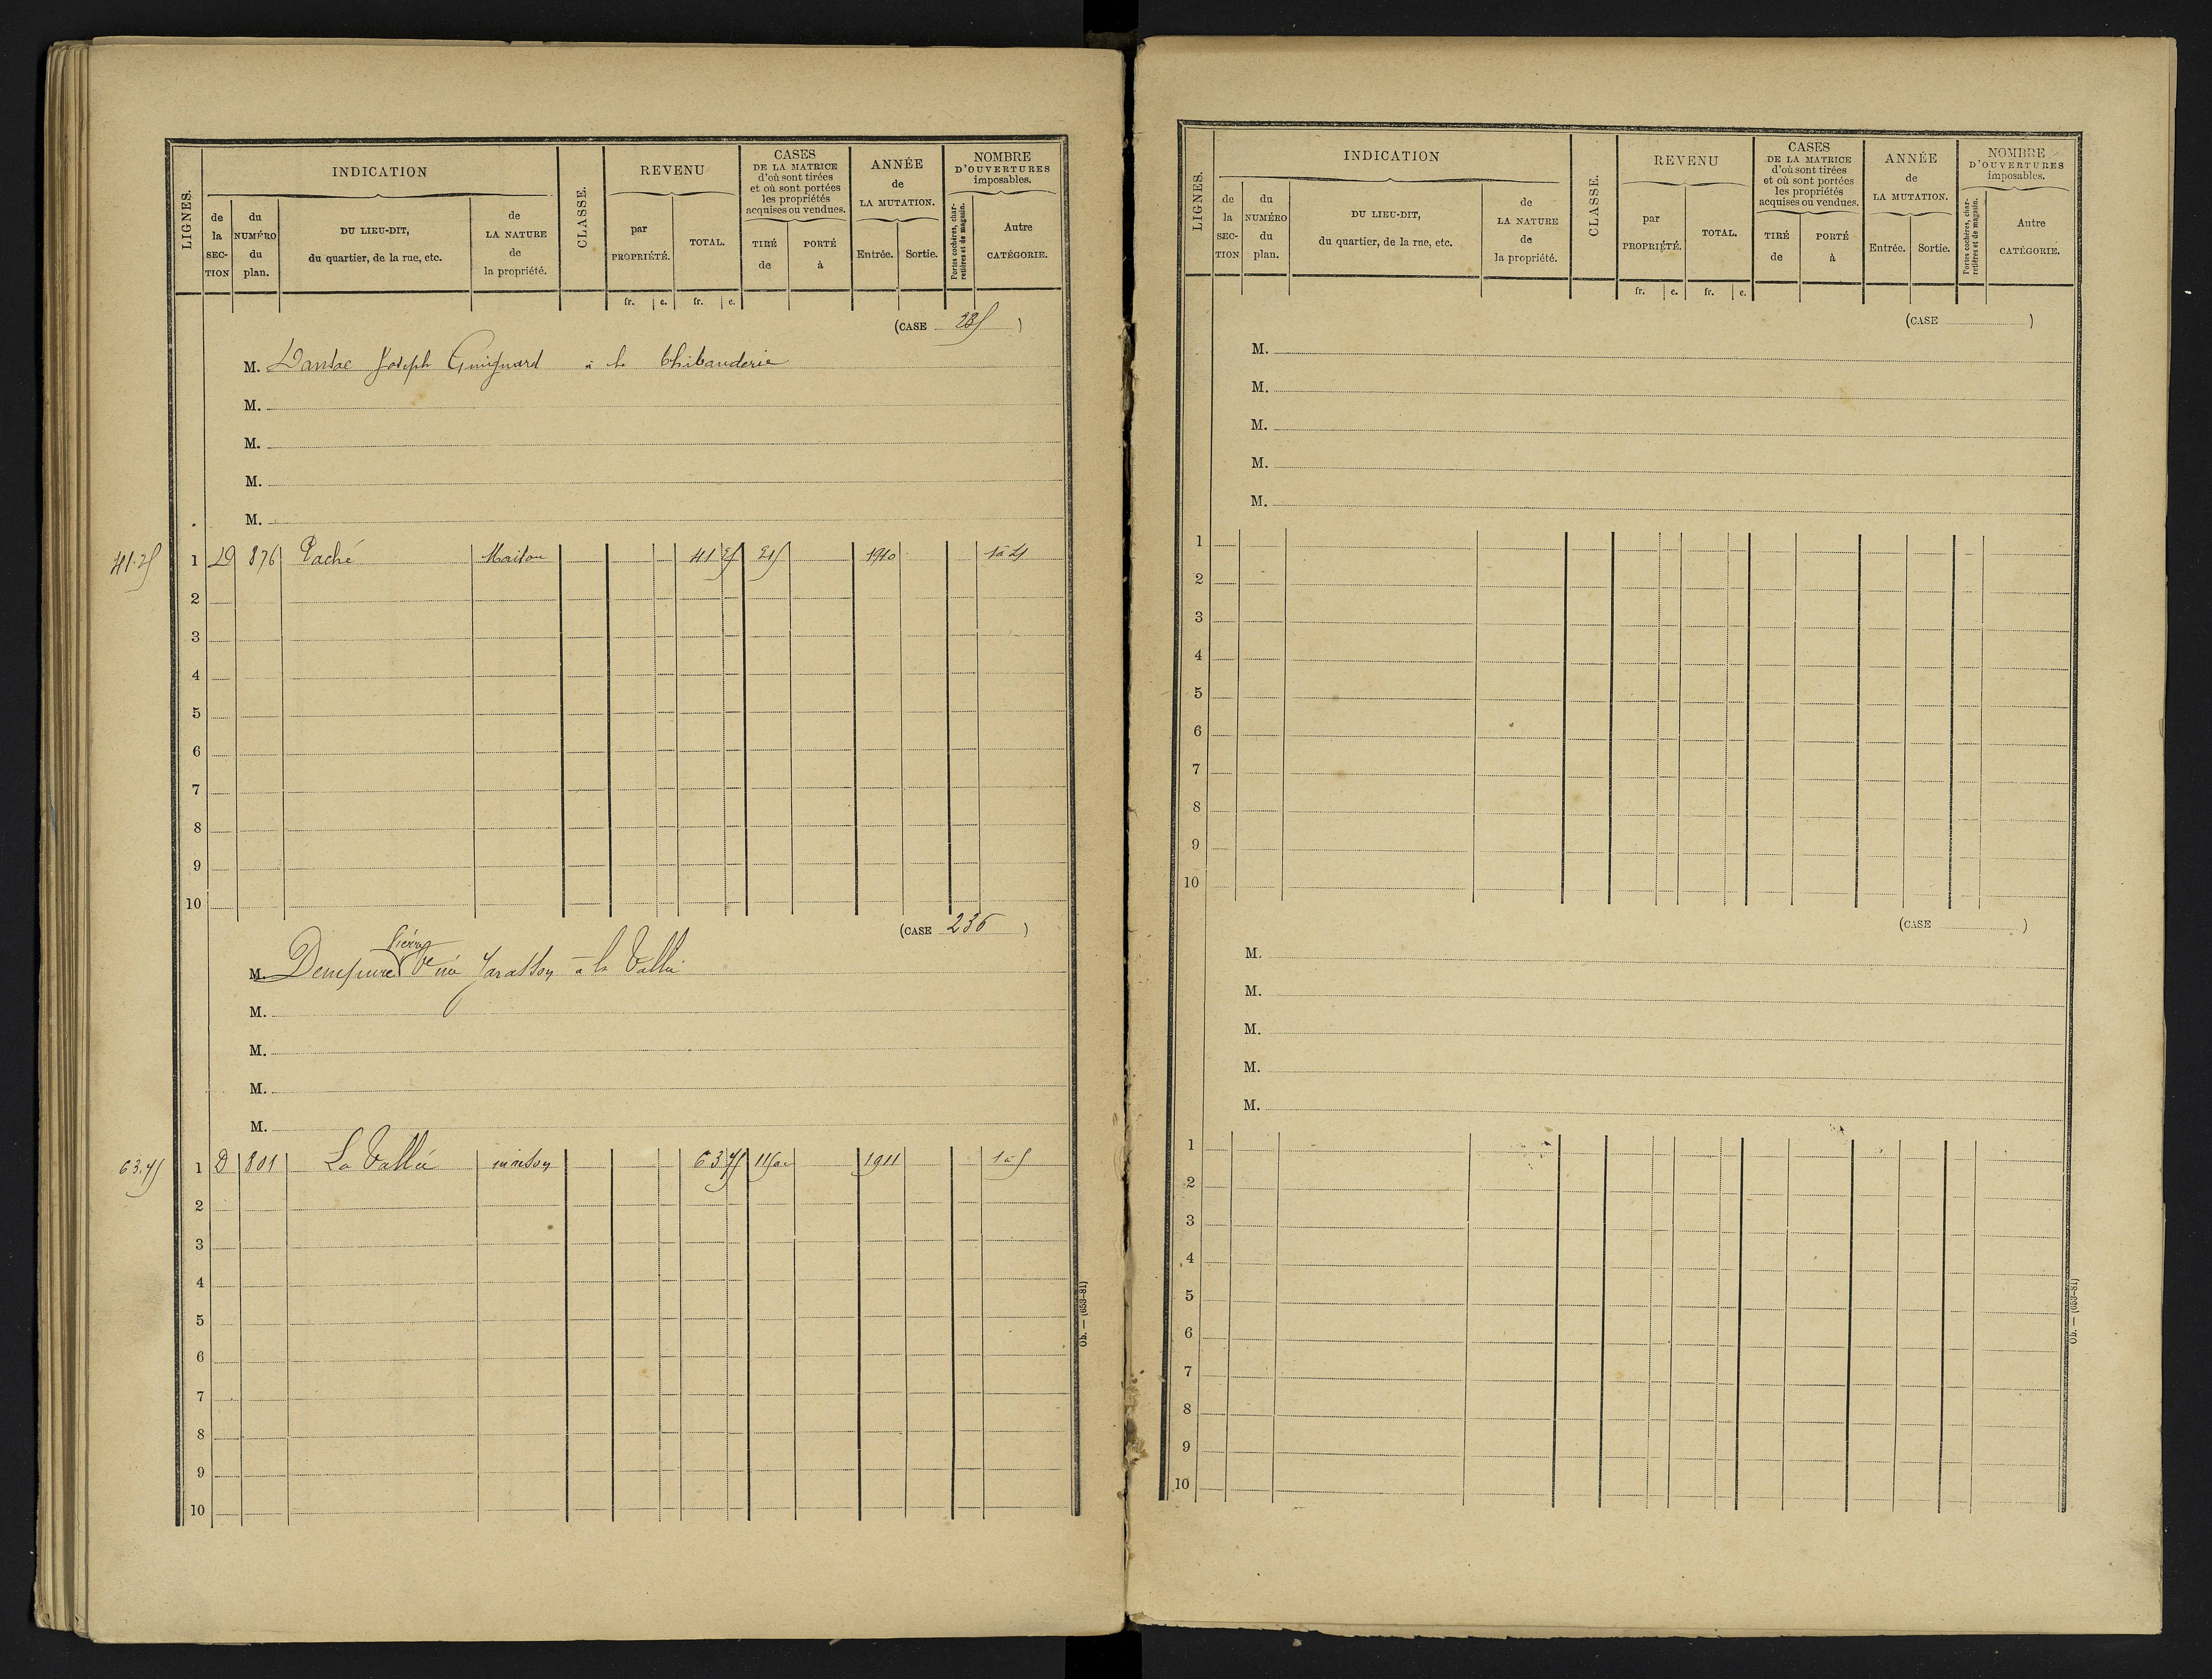 LIGNES.
INDICATION
de la SECTION
du NUMÉRO du plan.
DU LIEU-DIT, du quartier, de la rue, etc.
de LA NATURE de la propriété.
CLASSE.
REVENU
par PROPRIÉTÉ.
TOTAL.
CASES DE LA MATRICE d'où sont tirées et où sont portées les propriétés acquises ou vendues.
TIRÉ de
PORTÉ à
ANNÉE de LA MUTATION.
Entrée.
Sortie.
NOMBRE D'OUVERTURES imposables.
Portes cochères, charretières et de magasin.
Autre CATÉGORIE.
fr. c. fr. c.
(CASE )
M. Joseph Guignard à la Thibauderie
M.
M.
M.
M.
41.25 1 D 876 Paché Maison 41 25 1910 1à4
2
3
4
5
6
7
8
9
10
(CASE 236 )
Pierre
M. Ve née à la Vallée
M.
M.
M.
M.
63.75 1 D 801 La Vallée maison 63 75 1911 1à5
2
3
4
5
6
7
8
9
10
Ob. — (653-81)
LIGNES.
INDICATION
de la SECTION
du NUMÉRO du plan.
DU LIEU-DIT, du quartier, de la rue, etc.
de LA NATURE de la propriété.
CLASSE.
REVENU
par PROPRIÉTÉ.
TOTAL.
CASES DE LA MATRICE d'où sont tirées et où sont portées les propriétés acquises ou vendues.
TIRÉ de
PORTÉ à
ANNÉE de LA MUTATION.
Entrée.
Sortie.
NOMBRE D'OUVERTURES imposables.
Portes cochères, charretières et de magasin.
Autre CATÉGORIE.
fr. c. fr. c.
(CASE )
M.
M.
M.
M.
M.
1
2
3
4
5
6
7
8
9
10
(CASE )
M.
M.
M.
M.
M.
1
2
3
4
5
6
7
8
9
10
Ob. — (653-81)